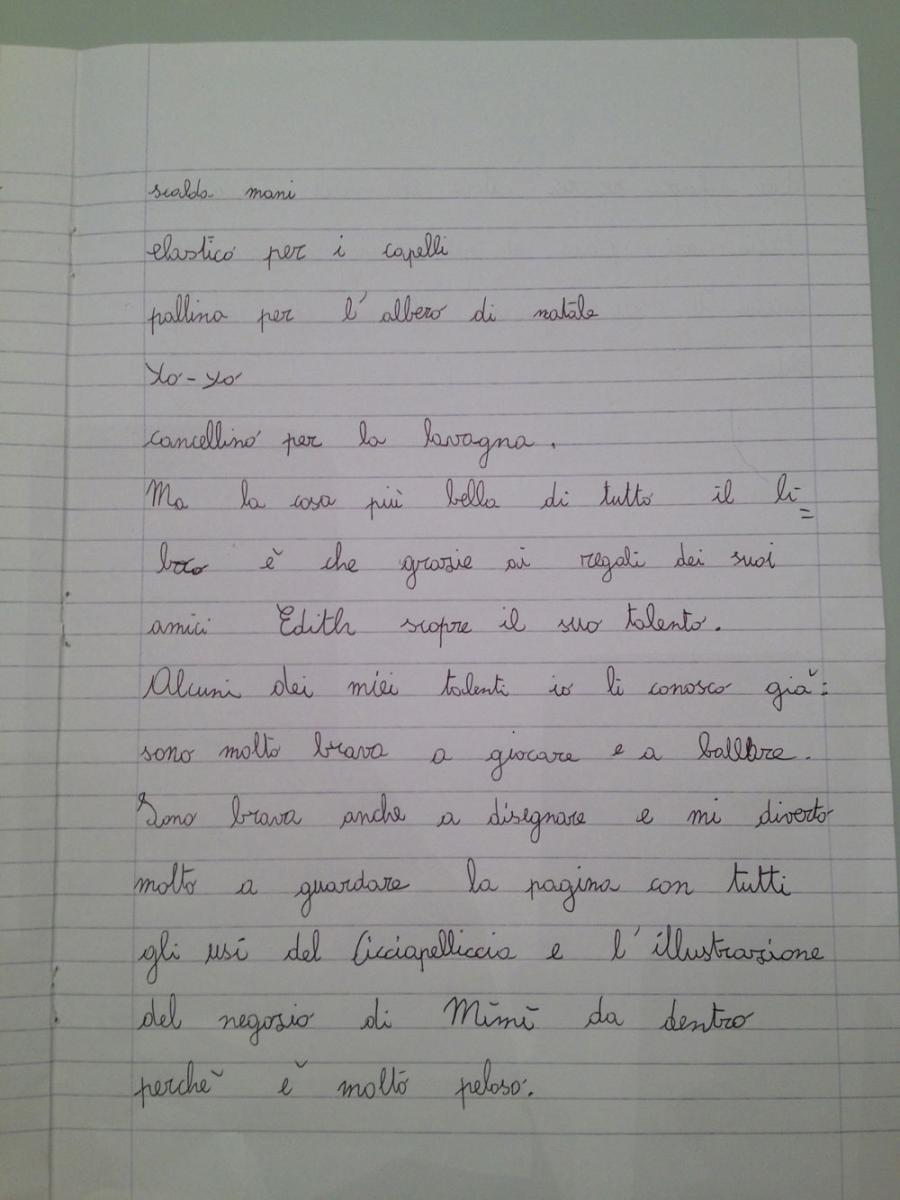 scalda mani
elastico per i capelli
pallina per l'albero di natale
Yo-yo
cancellino per la lavagna.
Ma la cosa più bella di tutto il li=
bro è che grazie ai regali dei suoi
amici Edith scopre il suo talento.
Alcuni dei miei talenti io li conosco già:
sono molto brava a giocare e a ballare.
Sono brava anche a disegnare e mi diverto
molto a guardare la pagina con tutti
gli usi del Cicciapelliccia e l'illustrazione
del negozio di Mimì da dentro
perchè è molto peloso.